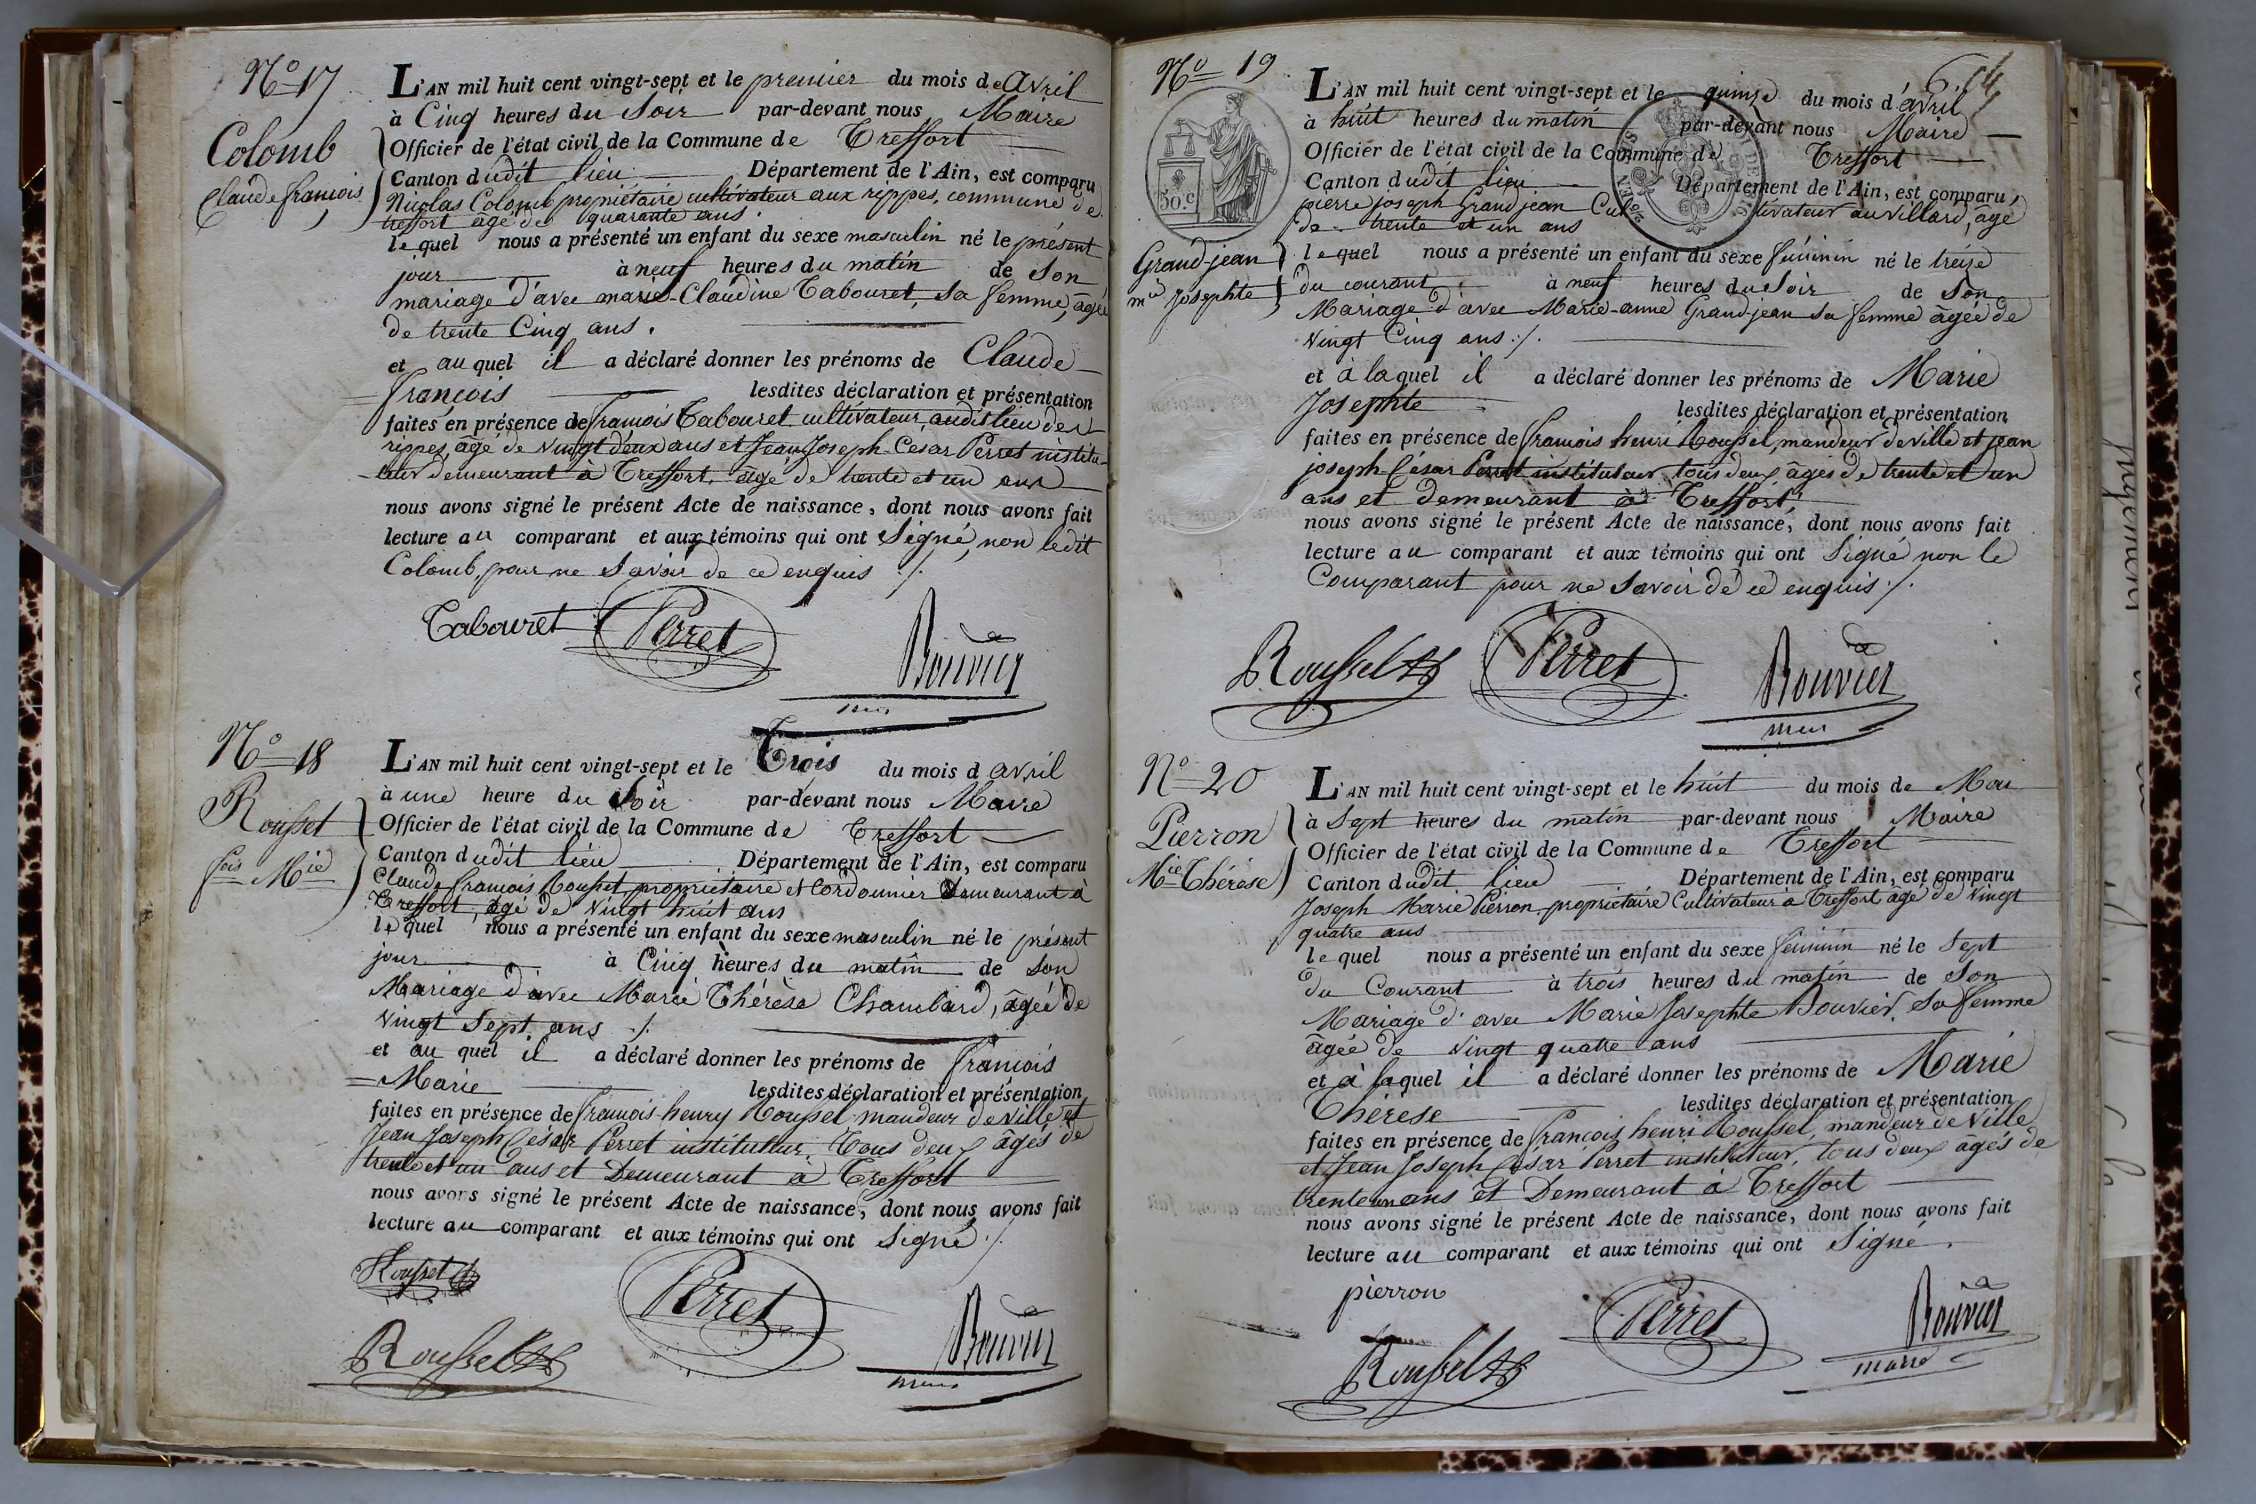 No 17
Colomb
Claude françois
L'AN mil huit cent vingt-sept et le premier du mois de avril
à Cinq heures du Soir par-devant nous Maire
Officier de l'état civil de la Commune de Treffort
Canton dudit lieu Département de l'Ain, est comparu
Nicolas Colomb propriétaire cultivateur aux rippes, commune de
treffort âgé de quarante ans.
lequel nous a présenté un enfant du sexe masculin né le présent
jour à neuf heures du matin de Son
mariage d'avec marie-Claudine Tabouret, sa femme, agée
de trente Cinq ans.
et au quel il a déclaré donner les prénoms de Claude
françois lesdites déclaration et présentation
faites en présence de françois Tabouret cultivateur, audit lieu des
rippes, âgé de vingt deux ans et Jean Joseph Cesar Perret institu-
teur demeurant à Treffort, âgé de trente et un ans
nous avons signé le présent Acte de naissance, dont nous avons fait
lecture au comparant et aux témoins qui ont Signé, non ledit
Colomb, pour ne Savoir de ce enquis ./.
Tabouret Perret Bouvier
No 18
Rousset
fois Mie
L'AN mil huit cent vingt-sept et le Trois du mois d avril
à une heure du Soir par-devant nous Maire
Officier de l'état civil de la Commune de Treffort
Canton dudit lieu Département de l'Ain, est comparu
Claude françois Rousset, propriétaire et Cordonnier Demeurant à
Treffort, âgé de vingt huit ans
lequel nous a présenté un enfant du sexe masculin né le présent
jour à Cinq heures du matin de Son
Mariage d'avec Marie Thérèse Chambard, âgée de
vingt Sept ans ./.
et au quel il a déclaré donner les prénoms de françois
Marie lesdites déclaration et présentation
faites en présence de françois henry Roussel mandeur de ville, et
Jean Joseph César Perret instituteur, Tous deux âgés de
trente et un ans et Demeurant à Treffort
nous avons signé le présent Acte de naissance, dont nous avons fait
lecture au comparant et aux témoins qui ont Signé ./.
Rousset Perret Bouvier
Roussel
No 19
50.c
Grand-jean
mie Josephte
L'AN mil huit cent vingt-sept et le quinze du mois d'avril
à huit heures du matin par-devant nous Maire
Officier de l'état civil de la Commune de Treffort
Canton dudit lieu Département de l'Ain, est comparu,
pierre joseph Grand jean Cultivateur au villard, âgé
de trente et un ans
lequel nous a présenté un enfant du sexe féminin né le treize
du courant à neuf heures du Soir de Son
Mariage d'avec Marie-anne Grand-jean sa femme âgée de
vingt Cinq ans ./.
et à laquel il a déclaré donner les prénoms de Marie
Josephte lesdites déclaration et présentation
faites en présence de françois henri Roussel, mandeur de ville et jean
joseph-César Perret instituteur, tous deux âgés de trente et un
ans et demeurant à Treffort,
nous avons signé le présent Acte de naissance, dont nous avons fait
lecture au comparant et aux témoins qui ont Signé non le
Comparant pour ne Savoir de ce enquis ./.
Roussel Perret Bouvier
No 20
Pierron
Mie Thérèse
L'AN mil huit cent vingt-sept et le huit du mois de Mai
à Sept heures du matin par-devant nous Maire
Officier de l'état civil de la Commune de Treffort
Canton dudit lieu Département de l'Ain, est comparu
Joseph Marie Pierron, propriétaire Cultivateur à Treffort âgé de vingt
quatre ans
lequel nous a présenté un enfant du sexe féminin né le Sept
du Courant à trois heures du matin de Son
Mariage d'avec Marie Josephte Bouvier, Sa femme
âgée de vingt quatre ans
et à laquel il a déclaré donner les prénoms de Marie
Thérèse lesdites déclaration et présentation
faites en présence de françois henri Roussel, mandeur de Ville
et Jean Joseph César Perret instituteur, tous deux âgés de
trente un ans et Demeurant à Treffort
nous avons signé le présent Acte de naissance, dont nous avons fait
lecture au comparant et aux témoins qui ont Signé.
pierron Perret Bouvier
Roussel maire